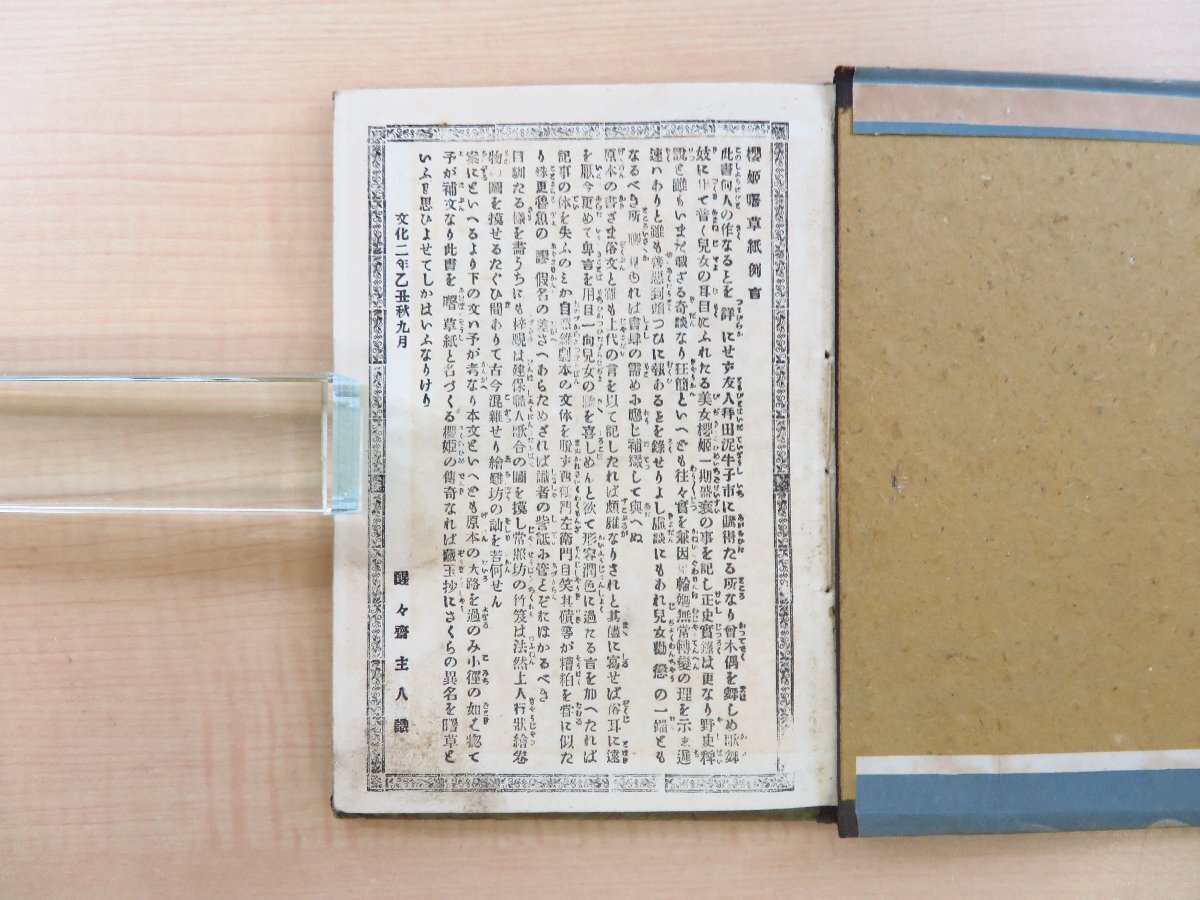 櫻姫曙草紙例言
此書何人の作なるとを詳にせず友人稗田泥牛子市に購得たる所なり曾木偶を舞しめ歌舞
妓に作て普く兒女の耳目にふれたる美女櫻姫一期盛衰の事を記し正史實錄は更なり野史稗
說と雖もいまだ載ざる奇談なり狂簡といへども往々實を兼因輪廻無常轉變の理を示し遲
速ハありと雖も善惡到頭つひに報あるとを錄せりよし虛談にもあれ兒女勸懲の一端とも
なるべき所聊見ゆれば書肆の需めに應じ補綴して與へぬ
原本の書ざま俗文と雖も上代の言を以て記したれば頗雅なりされと其儘に寫せば俗耳に遠
を厭今更めて卑言を用目一向兒女の聽を喜しめんと欲て形容潤色に過たる言を加へたれば
記事の体を失ふのミか自然雜劇本の文体を脫ず西澤門左衛門自笑其磧等が糟粕を甞に似た
り殊更魯魚の謬假名の差さへあらためざれば識者の訾詆に管とぞにはかるべき
目馴たる樣を畵うちにも梓覡は建保職人歌合の圖を摸し常照坊の竹笈は法然上人行狀繪卷
物の圖を摸せるたぐひ間ありて古今混雜せり繪難坊の訕を若何せん
案にといへるより下の文ハ予が考なり本文といへども原本の大路を過のみ小徑の如は惣て
予が補文なり此書を曙草紙と名づくる櫻姫の傳奇なれば藏玉抄にさくらの異名を曙草と
いふを思ひよせてしかはいふなりけり
文化二年乙丑秋九月
醒々齋主人識